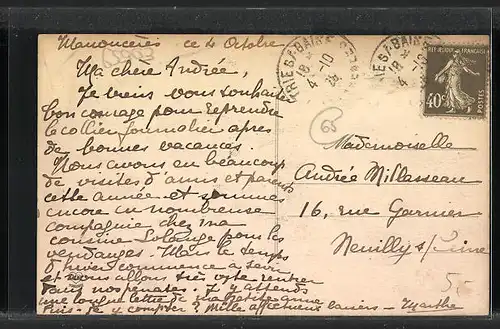 ce 4 Octobre
Ma chère Andrée,
Je viens vous souhaiter
bon courage pour reprendre
le collier journalier apres
de bonnes vacances.
Nous avons eu beaucoup
de visites d'amis et parents
cette année et sommes
encore en nombreuse
compagnie chez ma
cousine Solange pour les
vendanges. Mais le temps
d'hiver commence a sévir
et nous allons vite rentrer
dans nos pénates. J'y attends
une longue lettre de ma petite amie
Puis-je y compter? Mille affectueux baisers - Marthe
BAINS
18 H
4 -10
BAINS
18 H
4 -10
REPUBLIQUE FRANCAISE
40c
POSTES
65
Mademoiselle
Andrée Millasseau
16, rue Garnier
Neuilly s/Seine